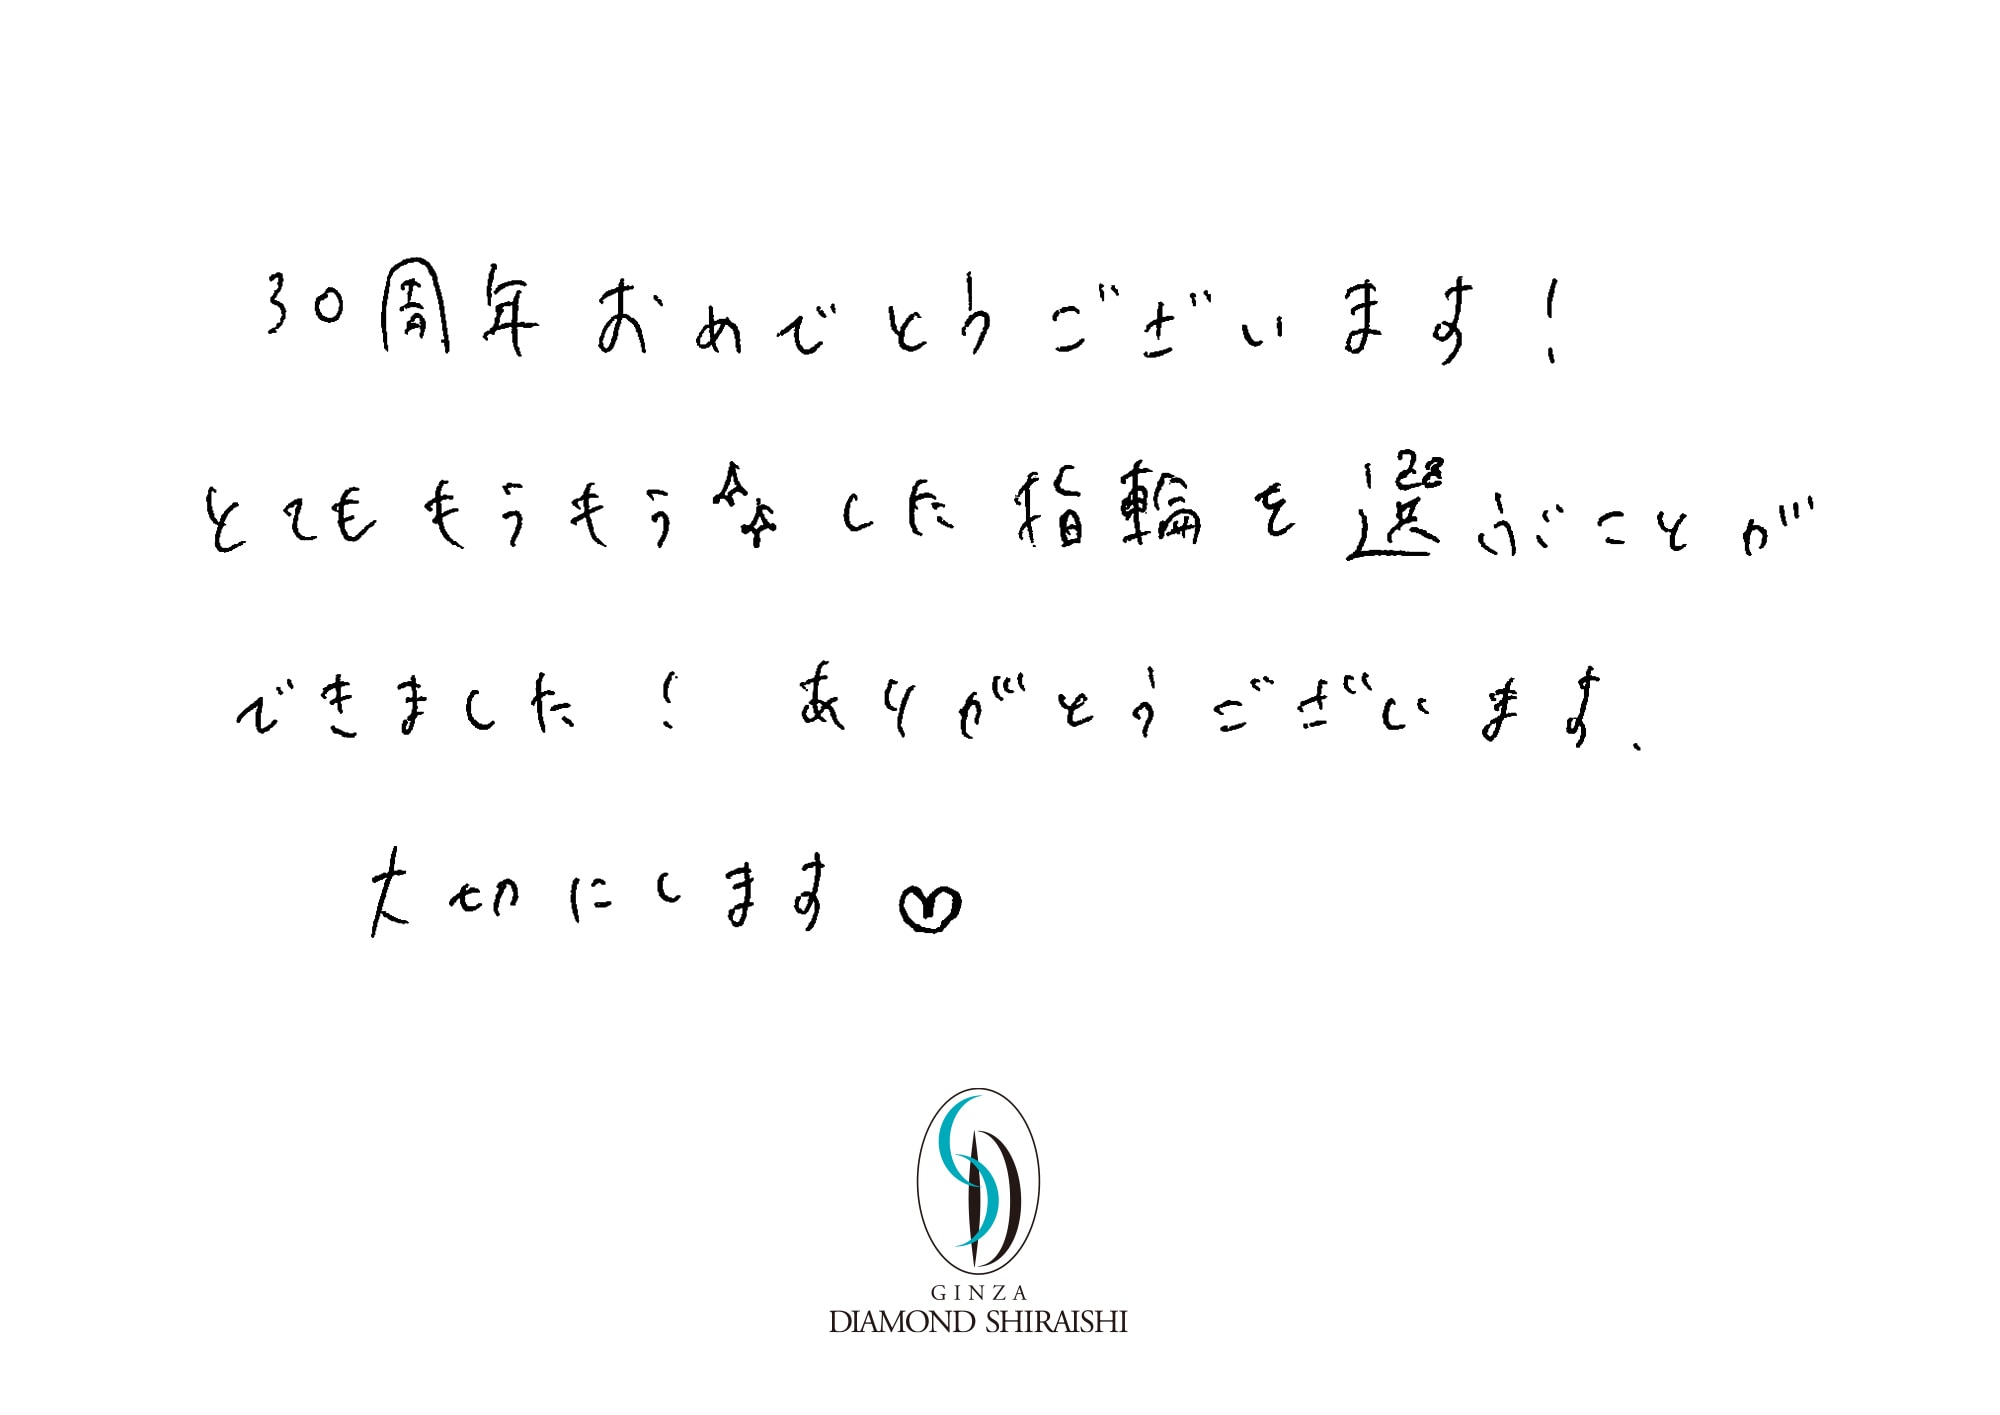 30周年おめでとうございます!
とてももうもう☆☆した指輪を選ぶことが
できました! ありがとうございます.
大切にします♡
GINZA
DIAMOND SHIRAISHI